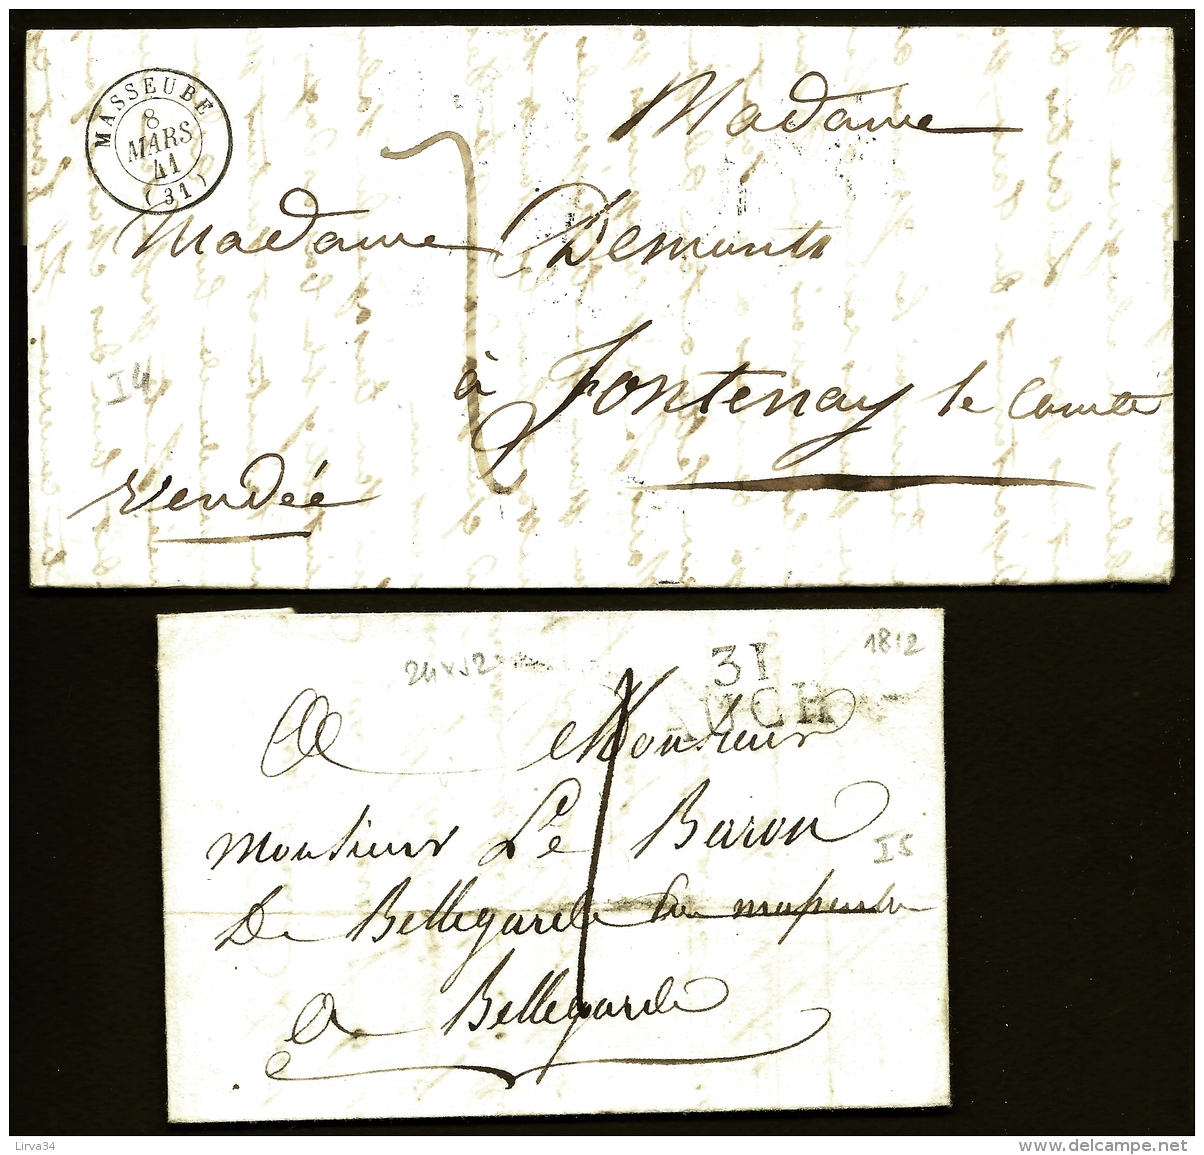 MASSEUBE
8
MARS
41
(31)
Madame
Madame Demonts
à Fontenay le Comte
I4
Vendée
31
AUCH
1812
A Monsieur
Monsieur Le Baron
I5
De Bellegarde
A Bellegarde
Lirva34
http://www.delcampe.net